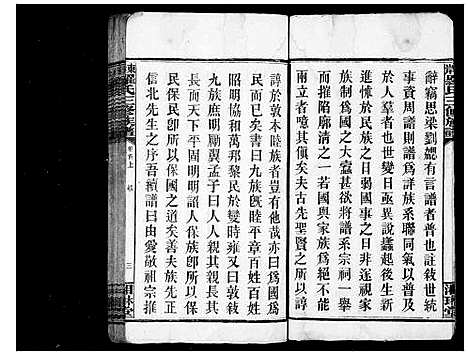 辭竊思梁劉勰有言譜者普也註敍世統
事資周譜譜爲詳族系聯同氣以普及
於人羣者也中世異族憑陵羣起後生新
進悚於民族之日弱國事之日非遂欲將
族制爲國之大蠹甚欲將譜系宗祠一舉
而摧陷廓清之若國與家族爲不
兩立者噫其傎矣夫古先聖賢之所以
諄諄於敦本睦族者豈有他哉亦曰救國
民而已矣書曰九族旣睦平章百姓百姓
昭明協和萬邦黎民於變時雍又曰敦敍
九族庶明勵翼孟子曰人人親其親長其
長而天下平大都謂保族卽所以保民保
民保民卽所以保國之道矣善夫族先正
信北先生之序吾續譜曰由愛敬祖宗推
羅氏三修族譜
卷首上
三